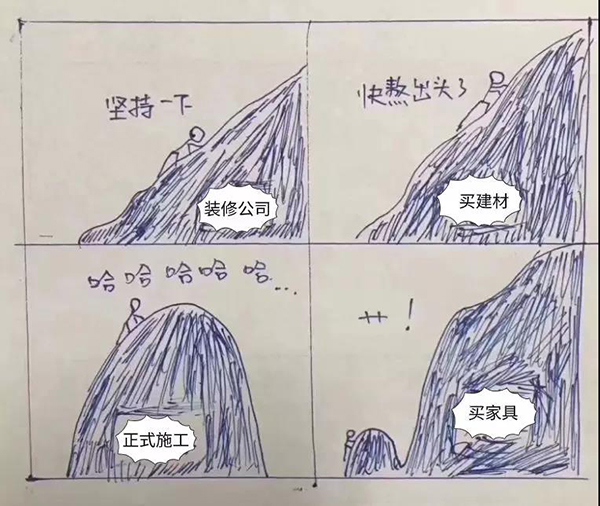 坚持一下
装修公司
快熬出头了
买建材
哈哈哈哈哈...
正式施工
艹！
买家具